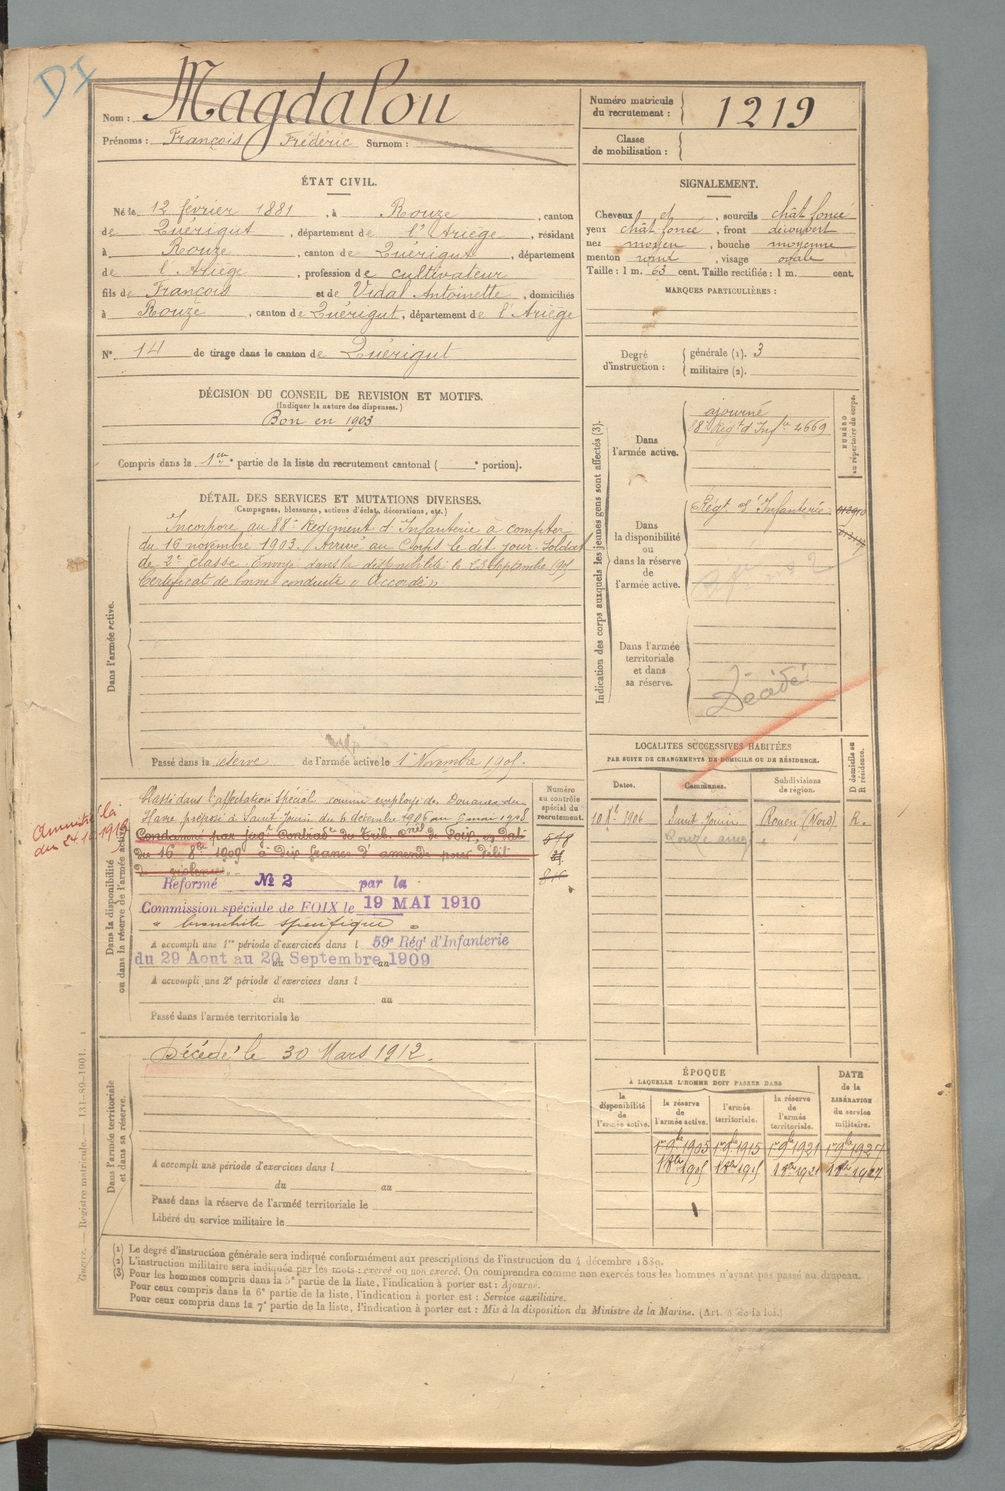 DI
Nom : Magdalou
Prénoms : François Frédéric Surnom :
Numéro matricule du recrutement : 1219
Classe de mobilisation :
ÉTAT CIVIL.
Né le 12 février 1881, à Rouze, canton
de Quérigut, département de l'Ariège, résidant
à Rouze, canton de Quérigut, département
de l'Ariège, profession de cultivateur
fils de François et de Vidal Antoinette, domiciliés
à Rouze, canton de Quérigut, département de l'Ariège
N° 14 de tirage dans le canton de Quérigut
SIGNALEMENT.
Cheveux et, sourcils chât foncé
yeux chât foncé, front découvert
nez moyen, bouche moyenne
menton rond, visage ovale
Taille : 1 m. 63 cent. Taille rectifiée : 1 m. cent.
MARQUES PARTICULIÈRES :
Degré d'instruction : générale (1). 3
militaire (2).
DÉCISION DU CONSEIL DE REVISION ET MOTIFS.
(Indiquer la nature des dispenses.)
Bon en 1903
Compris dans la 1re partie de la liste du recrutement cantonal ( portion).
DÉTAIL DES SERVICES ET MUTATIONS DIVERSES.
(Campagnes, blessures, actions d'éclat, décorations, etc.)
Dans l'armée active.
Incorporé au 88e Régiment d'Infanterie à compter
du 16 novembre 1903. Arrivé au Corps le dit jour. Soldat
de 2e classe. Envoyé dans la disponibilité le 23 septembre 1905
Certificat de bonne conduite « Accordé »
Passé dans la réserve de l'armée active le 1er Novembre 1905.
Indication des corps auxquels les jeunes gens sont affectés (3).
NUMÉRO au répertoire du corps.
Dans l'armée active.
ajourné
88e Régt d'Infie 4669
Dans la disponibilité ou dans la réserve de l'armée active.
Régt d'Infanterie
Dans l'armée territoriale et dans sa réserve.
Décédé
LOCALITÉS SUCCESSIVES HABITÉES
PAR SUITE DE CHANGEMENTS DE DOMICILE OU DE RÉSIDENCE.
Dates. Communes. Subdivisions de région. D domicile ou R résidence.
10 Xbre 1906 Saint Jouin Rouen (Nord) R.
Rouze arieg
Dans la disponibilité ou dans la réserve de l'armée active.
Numéro au contrôle spécial du recrutement.
Classé dans l'affectation spéciale comme employé des Douanes du
Havre préposé à Saint Jouin du 6 décembre 1906 au 5 mai 1908
Condamné par jugt Contradre du Trib. Onel de Foix, en date
du 16 8bre 1909 à Dix francs d'amende pour délit
de violences.
Amnistié loi
du 24 10 1919
Réformé N° 2 par la
Commission spéciale de FOIX le 19 MAI 1910
« bronchite spécifique »
A accompli une 1re période d'exercices dans l 59e Régt d'Infanterie
du 29 Aout au 20 Septembre 1909
A accompli une 2e période d'exercices dans l
du au
Passé dans l'armée territoriale le
Dans l'armée territoriale et dans sa réserve.
Décédé le 30 Mars 1912.
A accompli une période d'exercices dans l
du au
Passé dans la réserve de l'armée territoriale le
Libéré du service militaire le
ÉPOQUE
À LAQUELLE L'HOMME DOIT PASSER DANS
la disponibilité de l'armée active.
la réserve de l'armée active.
l'armée territoriale.
la réserve de l'armée territoriale.
DATE de la LIBÉRATION du service militaire.
1er 9bre 1905 1er 9bre 1915 1er 9bre 1921 1er 9bre 1927
(1) Le degré d'instruction générale sera indiqué conformément aux prescriptions de l'instruction du 4 décembre 1889.
(2) L'instruction militaire sera indiquée par les mots : exercé ou non exercé. On comprendra comme non exercés tous les hommes n'ayant pas passé au drapeau.
(3) Pour les hommes compris dans la 5e partie de la liste, l'indication à porter est : Ajourné.
Pour ceux compris dans la 6e partie de la liste, l'indication à porter est : Service auxiliaire.
Pour ceux compris dans la 7e partie de la liste, l'indication à porter est : Mis à la disposition du Ministre de la Marine. (Art. 4 de la loi.)
Registre matricule. — 131-89-1901.